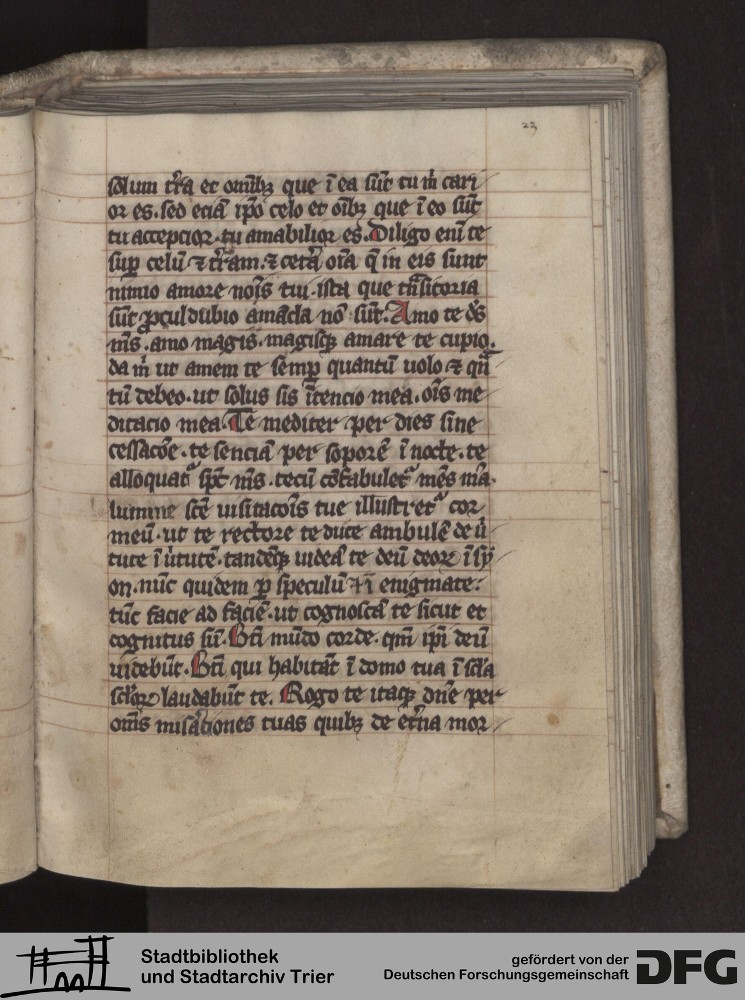 23
solum t̄ra et om̄ibꝫ que ī ea sūt tu m̄ cari
or es. sed eciā ip̄o celo et oībꝫ que ī eo sūt
tu accepcior. tu amabilior es. Diligo enī te
suꝑ celū ⁊ t̄ram. ⁊ cet̾a oīa q̄ in eis sunt
nimio amore noīs tui. ista que t̃nsitoria
sūt ꝓcul dubio amāda nō sūt. Amo te d̾s
m̄s. amo magis. magisqꝫ amare te cupio.
da m̄ ut amem te semꝑ quantū uolo ⁊ qñ
tū debeo. ut solus sis ītencio mea. oīs me
ditacio mea. Te mediter per dies sine
cessacōe. te senciā per soporē ī nocte. te
alloquat᷑ sp̄c m̄s. tecū cōfabulet᷑ mēs m̄a.
lumine sc̄e uisitacōis tue illustret᷑ cor
meū. ut te rectore te duce ambulē de ū
tute ī ūtutē. tandēqꝫ uideā te deū deoꝝ ī sy
on. nūc quidem ꝑ speculū ⁊ ī enigmate.
tūc facie ad faciē. ut cognoscā te sicut et
cognitus sū. Bt̄i mūdo corde. qm̄ ip̄i deū
uidebūt. Bt̄i qui habitāt ī domo tua ī sc̄la
sc̄loꝝ laudabūt te. Rogo te itaqꝫ dn̄e per
om̄s mis̾aciones tuas quibꝫ de et̾na mor
Stadtbibliothek
und Stadtarchiv Trier
gefördert von der
Deutschen Forschungsgemeinschaft
DFG